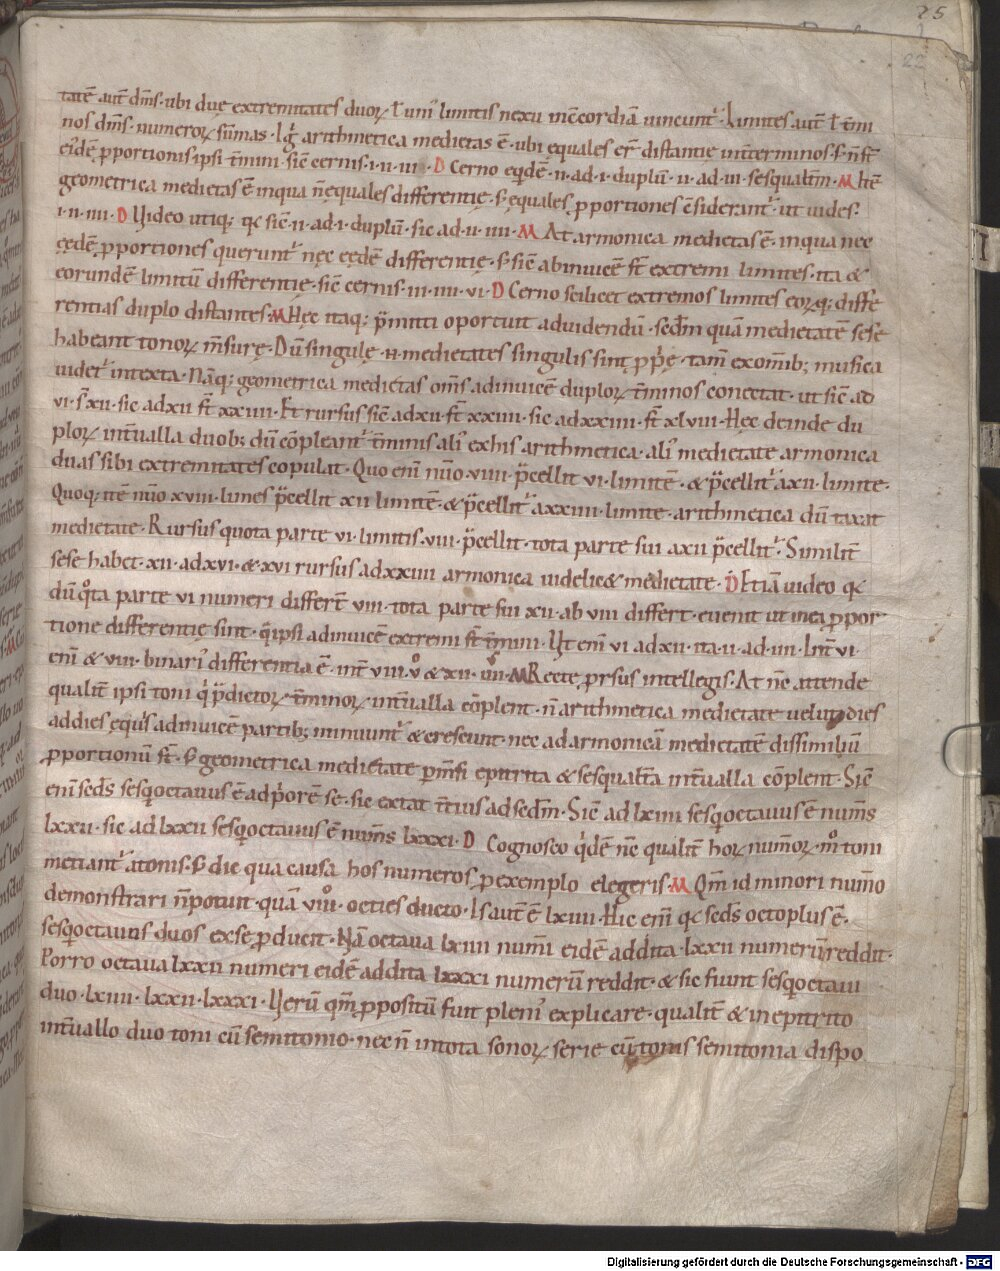 25
22
tatē aut̄ dm̄s · ubi duę extremitates duoꝝ ł uni' limitis nexu in c̄cordiā iuncunt̄ · Limites aut̄ ł t̄mi
nos dm̄s · numeroꝝ sūmas · Igr̄ arithmetica medietas ē · ubi equales er̄ distantie int̄ terminos · s; n̄ st̄
eidē ꝓportionis ipsi t̄mini · sic̄ cernis · i · ii · iii · D Cerno eq̇dē · ii · ad · i · duplū · ii · ad · iii · sesqualt̄m · M Itē
geometrica medietas ē in qua n̄ equales differentię · s; equales ꝓportiones c̄siderant̄ · ut uides ·
i · ii · iiii · D Video utiq; qc̄ sic̄ · ii · ad · i · duplū · sic ad · ii · iiii · M At armonica medietas ē · in qua nec
eędē ꝓportiones querunt̄ · nęc eędē differentię · s; sic̄ ab inuicē st̄ extremi limites · ita &
eorundē limitū differentię · sic̄ cernis · iii · iiii · vi · D Cerno scilicet extremos limites eoꝝq; diffe
rentias duplo distantes · M Hęc itaq; p̄mitti oportuit ad uidendū · sed̄m quā medietatē sese
habeant tonoꝝ m̄surę · Dū singulę · n · medietates singulis sint ꝓp̄ę · tam̄ ex om̄ib; musica
uidet̄ intexta · Nāq; geometrica medietas om̄s ad inuicē duploꝝ t̄minos conectat · ut sic̄ ad
vi · s̄ xii · sic ad xii st̄ xxiiii · Et rursus sic̄ ad xii · st̄ xxiiii · sic ad xxiiii · st̄ xlviii · Hęc deinde du
ploꝝ int̄ualla duob; dū cōpleant̄ t̄minis ali' ex his arithmetica · ali' medietate armonica
duas sibi extremitates copulat · Quo eni nūo · viiii · p̄cellit vi · limitē · & p̄cellit̄ a xii · limite ·
Quoq; itē nūo xviii · limes p̄cellit xii limitē · & p̄cellit̄ a xxiiii · limite · arithmetica dū taxat
medietate · Rursus quota parte vi · limitis · viii · p̄cellit · tota parte sui a xii p̄cellit̄ · Similit̄
sese habet · xii · ad xvi · & xvi rursus ad xxiiii armonica uidelic& medietate · D Etiā uideo qc̄
dū q̊ta parte vi numeri differt̄ viii · tota parte sui xii · ab viii differt · euenit ut in ea ꝓpor
tione differentię sint · q̄ ipsi ad inuicē extremi st̄ t̄mini · Vt eni vi ad xii · ita · ii · ad · iiii · Int̄ vi ·
eni & viii · binari' differentia ē · int̄ viii · v̊ & xii · iiii · M Recte ꝓrsus intellegis · At nc̄ attende
qualit̄ ipsi toni q̇ p̄dictoꝝ t̄minoꝝ int̄ualla cōplent · n̄ arithmetica medietate uelut dies
ad dies ęquis ad inuicē partib; minuunt̄ & crescunt · nec ad armonicā medietatē dissimiliū
ꝓportionū st̄ · s; geometrica medietate ꝑmixti epitrita & sesqualt̄a int̄ualla cōplent · Sic̄
eni sed̄s sesq̇octauus ē ad p̄orē se · sic extat t̄tius ad sed̄m · Sic̄ ad lxiiii sesq̇octauus ē num̄s
lxxii · sic ad lxxii sesq̇octauus ē num̄s lxxxi · D Cognosco q̇dē nc̄ qualit̄ hoꝝ num̄oꝝ · m̊ toni
metiant̄ a tonis · s; dic qua causa hos numeros ꝓ exemplo elegeris · M Qm̄ id minori num̄o
demonstrari n̄ potuit · quā viii̊ · octies ducto · Is aut̄ ē lxiiii · Hic eni qc̄ sed̄s octoplus ē ·
sesq̇octauus duos ex se ꝓducit · Nā octaua lxiiii num̄i eidē addita · lxxii numerū reddit ·
Porro octaua lxxii numeri eidē addita lxxxi numerū reddit · & sic fiunt sesq̇octaui
duo · lxiiii · lxxii · lxxxi · Verū qm̄ ꝓpositū fuit pleni' explicare · qualit̄ & in epitrito
int̄uallo duo toni cū semitonio · nec n̄ in tota sonoꝝ serie cū tonis semitonia dispo
Digitalisierung gefördert durch die Deutsche Forschungsgemeinschaft - DFG